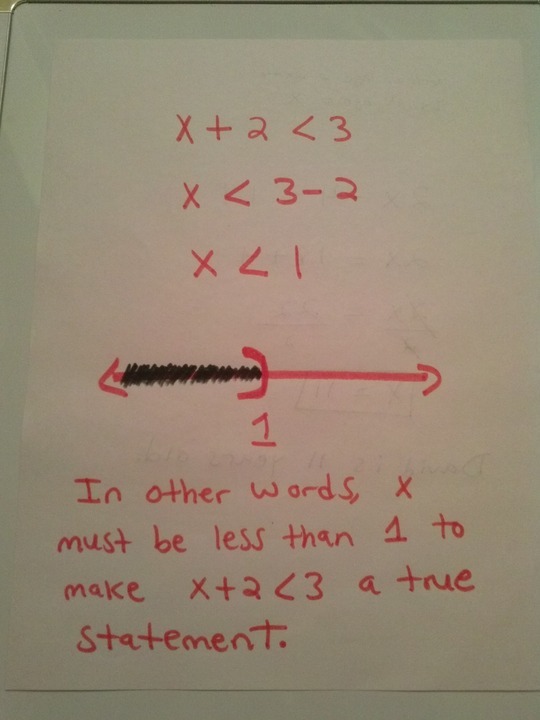 x + 2 < 3
x < 3 - 2
x < 1
1
In other words, x
must be less than 1 to
make x+2<3 a true
statement.